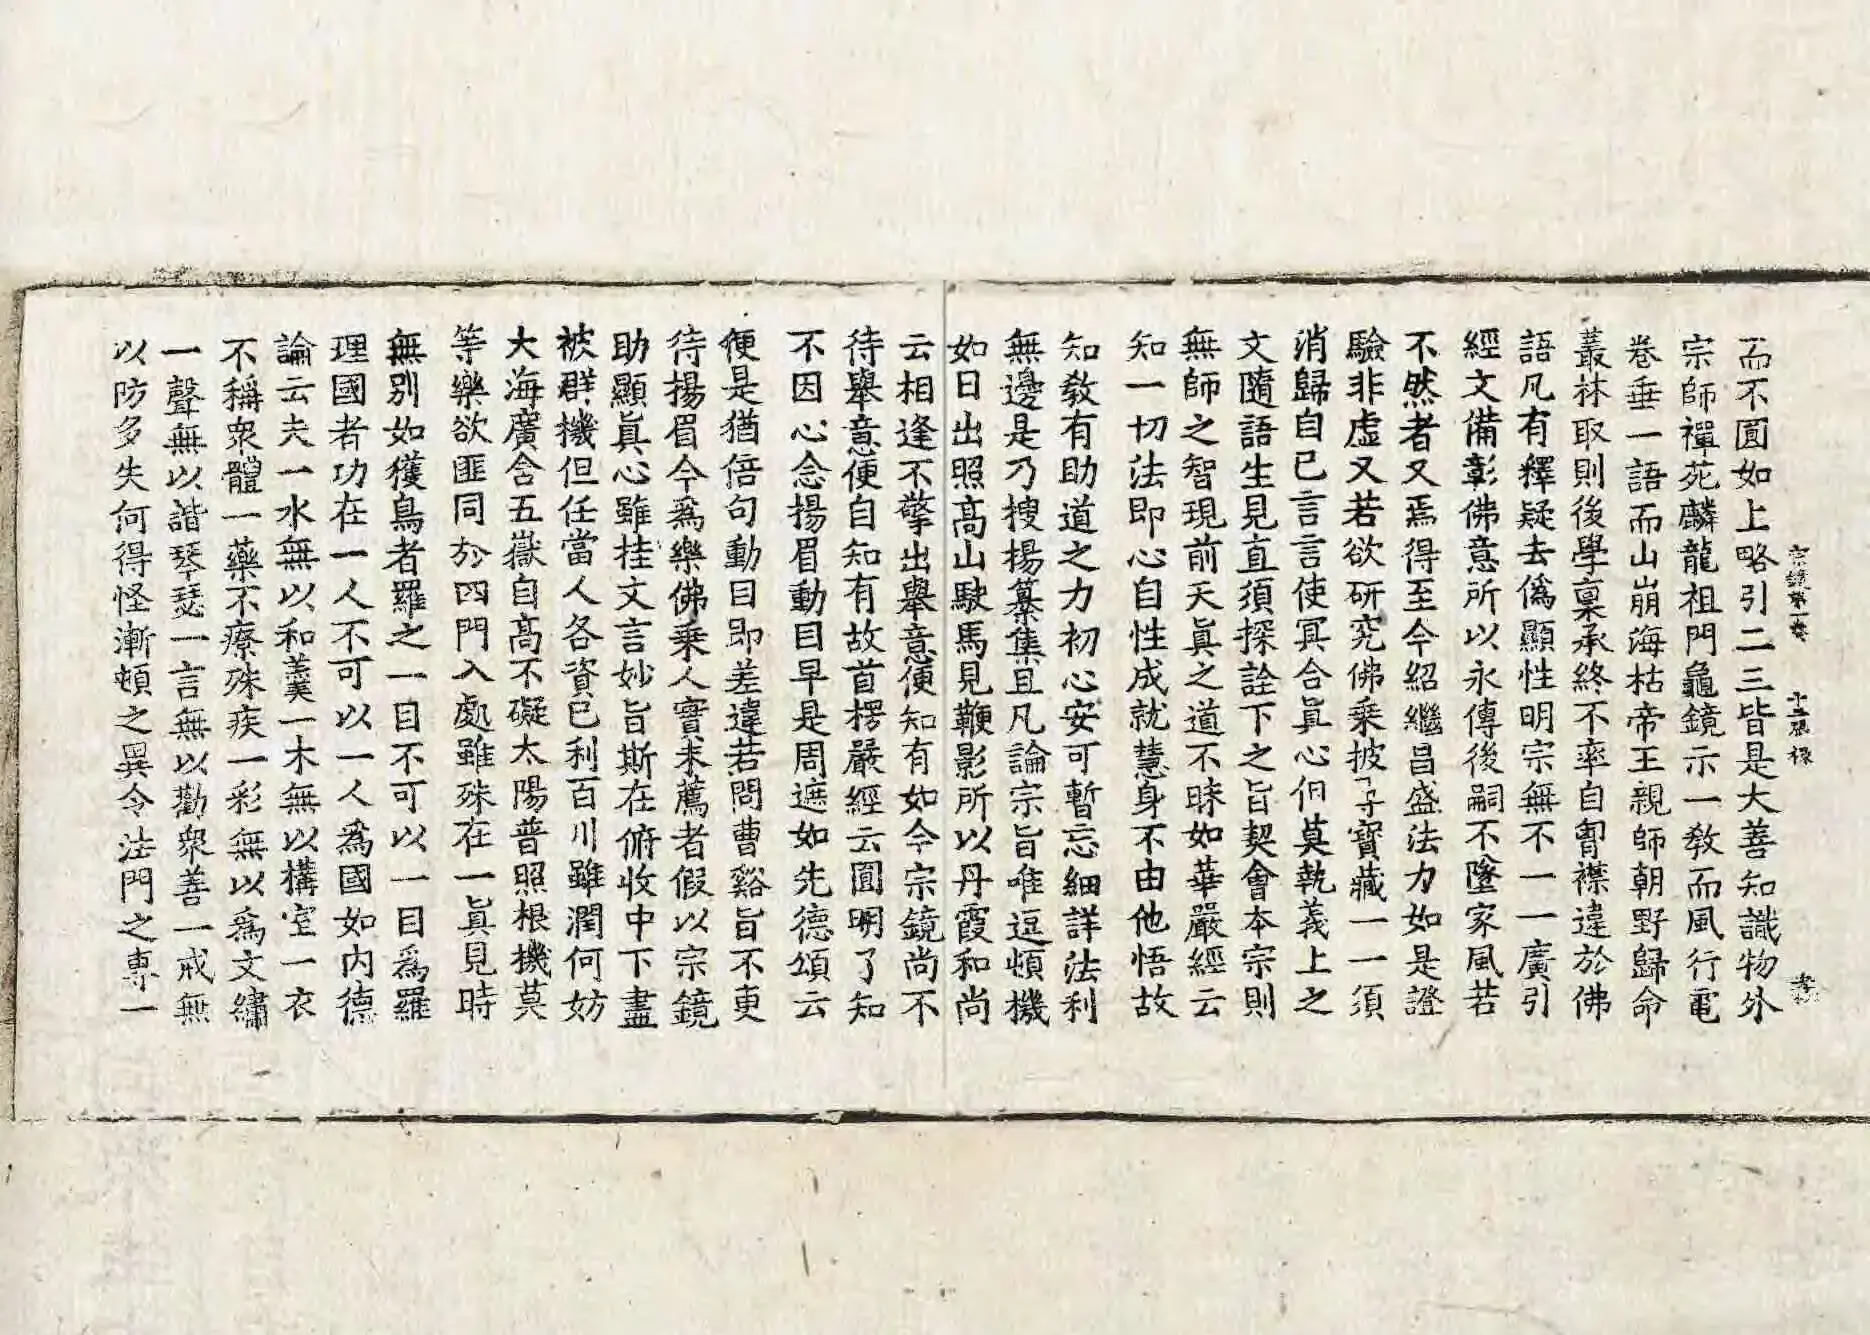 而不圓如上略引二三皆是大善知識物外
宗師禪苑麟龍祖門龜鏡示一教而風行電
卷垂一語而山崩海枯帝王親師朝野歸命
叢林取則後學稟承終不率自胷襟違於佛
語凡有釋疑去僞顯性明宗無不一一廣引
經文備彰佛意所以永傳後嗣不墜家風若
不然者又焉得至今紹繼昌盛法力如是證
驗非虛又若欲研究佛乘披寶藏一一須
消歸自己言言使冥合眞心但莫執義上之
文隨語生見直須探詮下之旨契會本宗則
無師之智現前天眞之道不昧如華嚴經云
知一切法即心自性成就慧身不由他悟故
知教有助道之力初心安可暫忘細詳法利
無邊是乃搜揚纂集且凡論宗旨唯逗頓機
如日出照高山駃馬見鞭影所以丹霞和尚
云相逢不擎出舉意便知有如今宗鏡尚不
待舉意便自知有故首楞嚴經云圓明了知
不因心念揚眉動目早是周遮如先德頌云
便是猶倍句動目即差違若問曹谿旨不更
待揚眉今爲樂佛乘人實未薦者假以宗鏡
助顯眞心雖挂文言妙旨斯在俯收中下盡
被群機但任當人各資己利百川雖潤何妨
大海廣含五嶽自高不礙太陽普照根機莫
等樂欲匪同於四門入處雖殊在一眞見時
無別如獲鳥者羅之一目不可以一目爲羅
理國者功在一人不可以一人爲國如內德
論云夫一水無以和羹一木無以構室一衣
不稱衆體一藥不療殊疾一彩無以爲文繡
一聲無以諧琴瑟一言無以勸衆善一戒無
以防多失何得怪漸頓之異令法門之專一